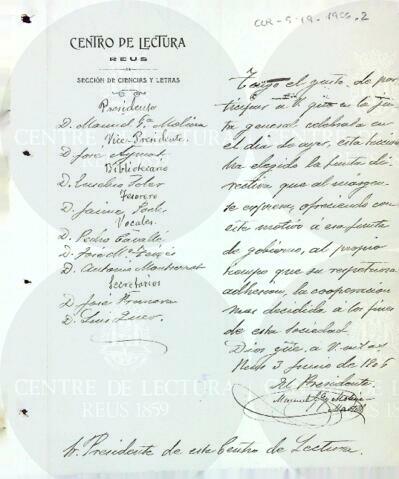 CUR-S-19-1906-2
CENTRO DE LECTURA
REUS
SECCIÓN DE CIENCIAS Y LETRAS
Presidente
D. Manuel Gª Molina
Vice-Presidente
D. José Aymat
Bibliotecario
D. Eusebio Folar
Tesorero
D. Jaime
Vocales
D. Pedro Cavallé
D. José Mª
D. Antonio Montserrat
Secretarios
D. José
D. Luis Quer
Tengo el gusto de par-
ticipar a V. que en la Jun-
ta general celebrada en
el día de ayer, esta sección
ha elegido la Junta di-
rectiva que al margen
se expresa, ofreciendo con
este motivo á esa Junta
de gobierno, al propio
tiempo que su respetuosa
adhesión, la cooperación
mas decidida á los fines
de esta sociedad.
Dios güe. a V. m. as
Reus 3 Junio de 1906
El Presidente
Manuel Gª Molina
Sr. Presidente de este Centro de Lectura.
CENTRE DE LECTURA
REUS 1859